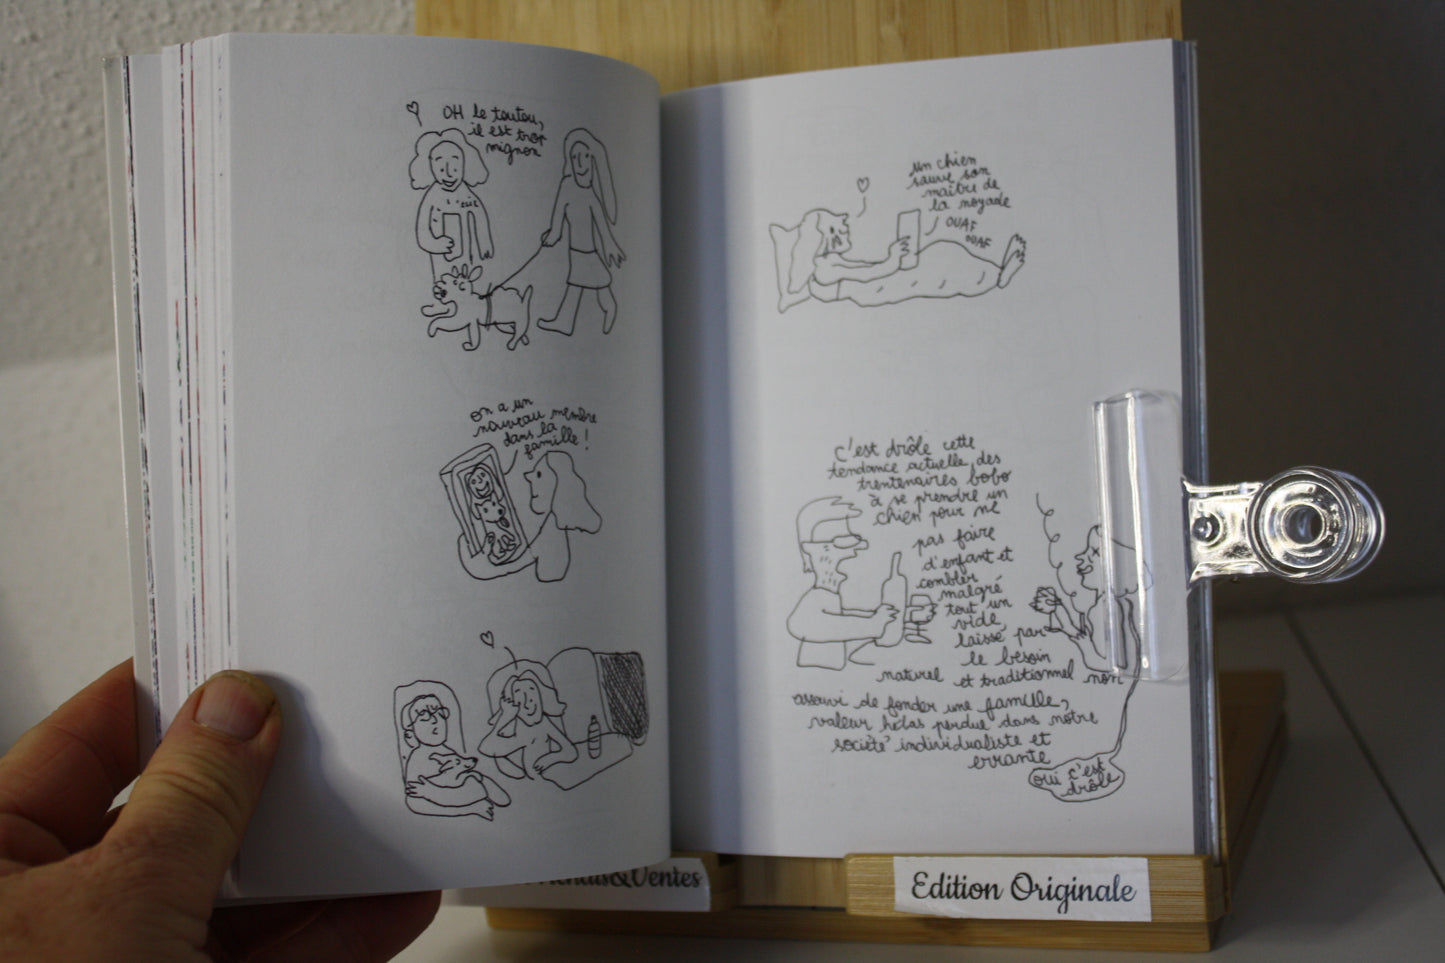 OH le toutou,
il est trop
mignon
on a un
nouveau membre
dans la
famille !
un chien
sauve son
maître de
la noyade
OUAF
OUAF
c'est drôle cette
tendance actuelle des
trentenaires bobo
à se prendre un
chien pour ne
pas faire
d'enfant et
combler
malgré
tout un
vide,
laissé par
le besoin
naturel et traditionnel non
assouvi de fonder une famille,
valeur hélas perdue dans notre
société individualiste et
errante
oui c'est
drôle
&Ventes
Edition Originale